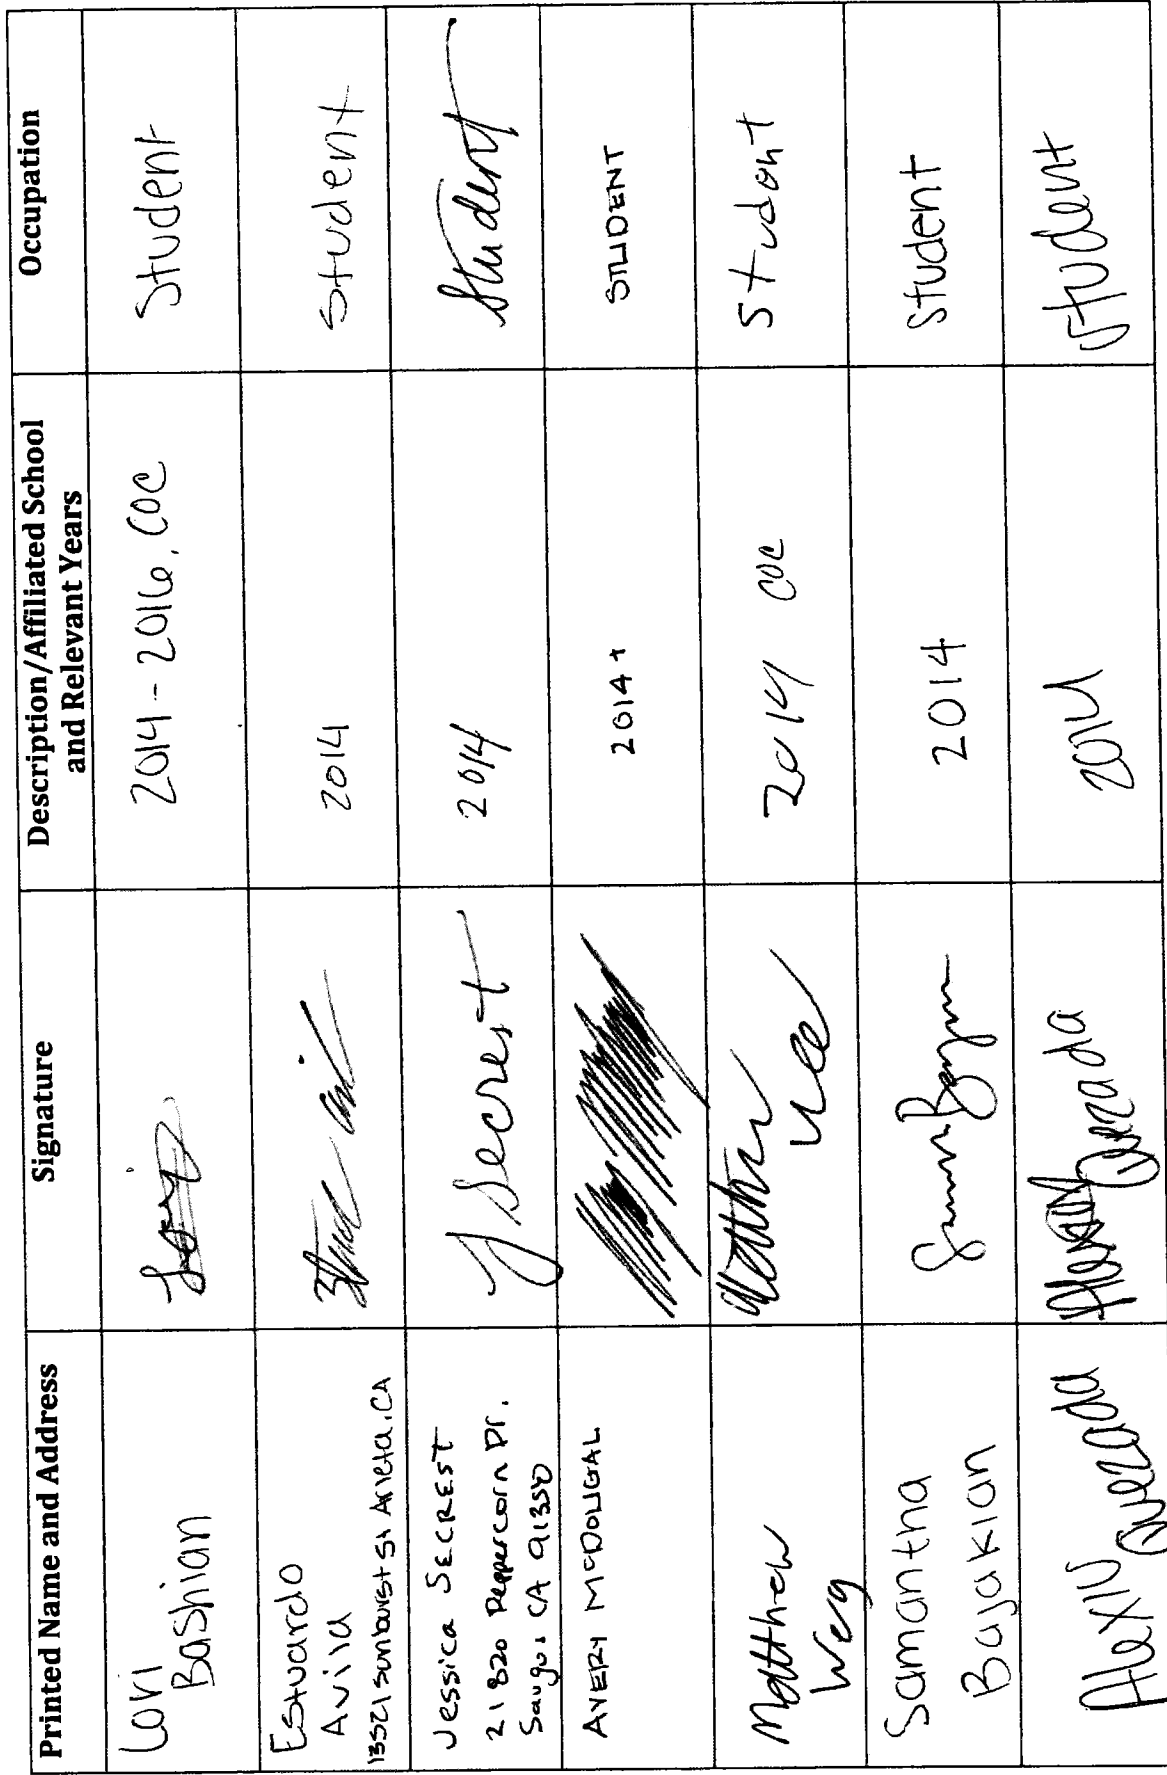 Printed Name and Address
Signature
Description/Affiliated School
and Relevant Years
Occupation
Lori
Bashian
Lori
2014-2016, COC
Student
Estuardo
Avila
13521 sunburst st Arleta, CA
2014
Student
Jessica SECREST
21820 Peppercorn Dr.
Saugus CA 91350
J Secrest
2014
Student
AVERY McDOUGAL
2014+
STUDENT
Matthew
Matthew
2014 COC
Student
Samantha
Bajakian
2014
Student
Quezada
Quezada
2014
Student